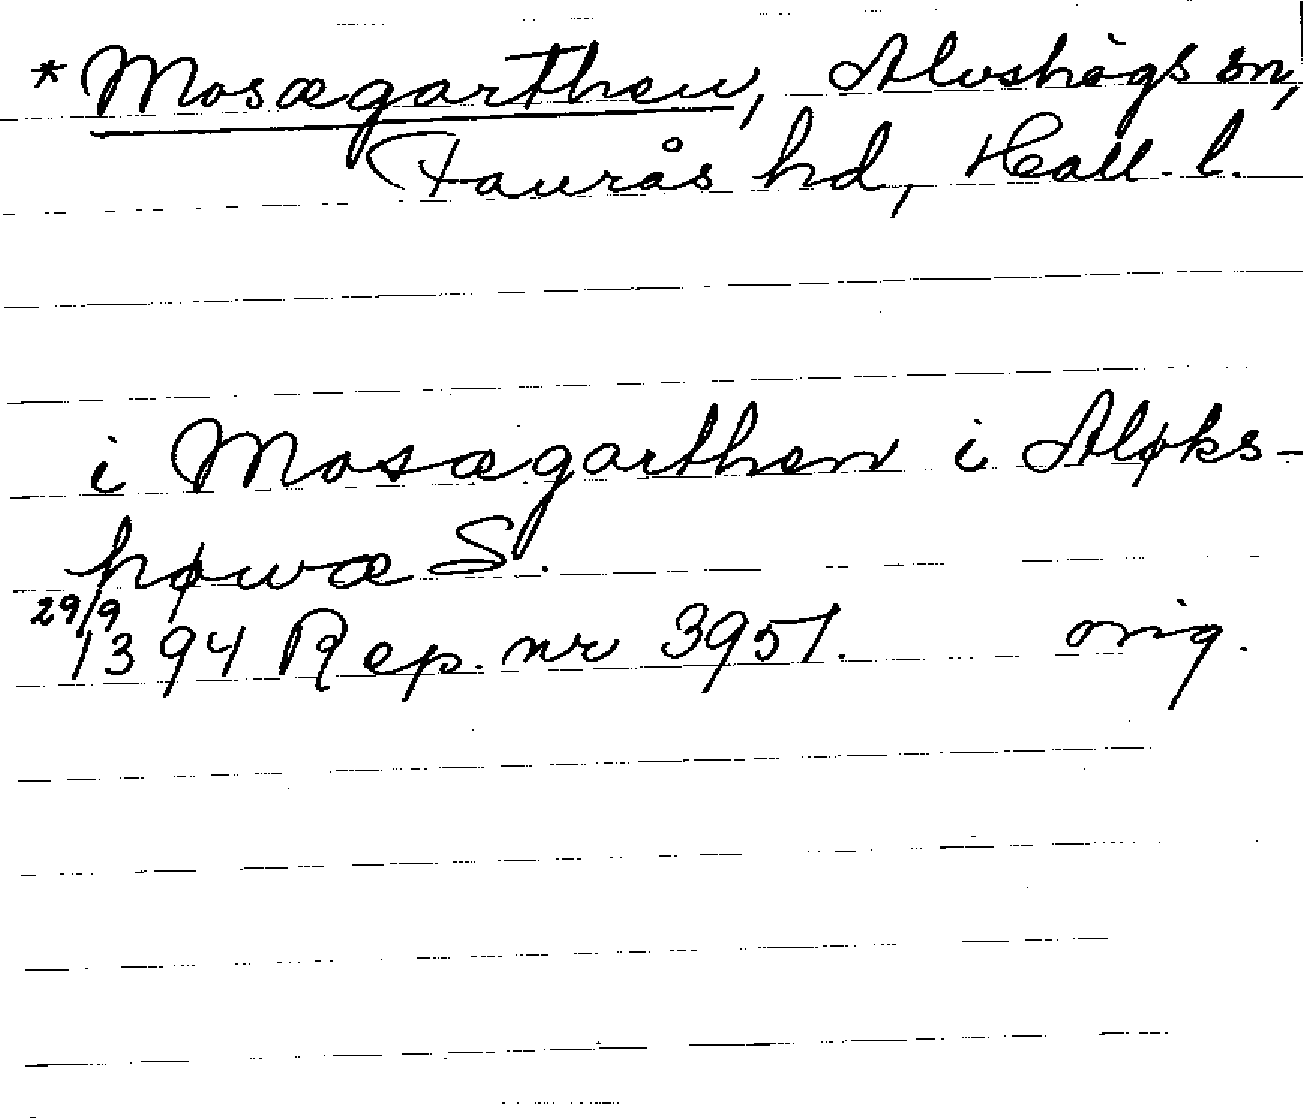 *Mosægarthen, Alvshögs sn,
Faurås hd, Hall. l.
i Mosægarthen i Aløks-
høwæ S.
29/9
1394 Rep. nr 3951. orig.